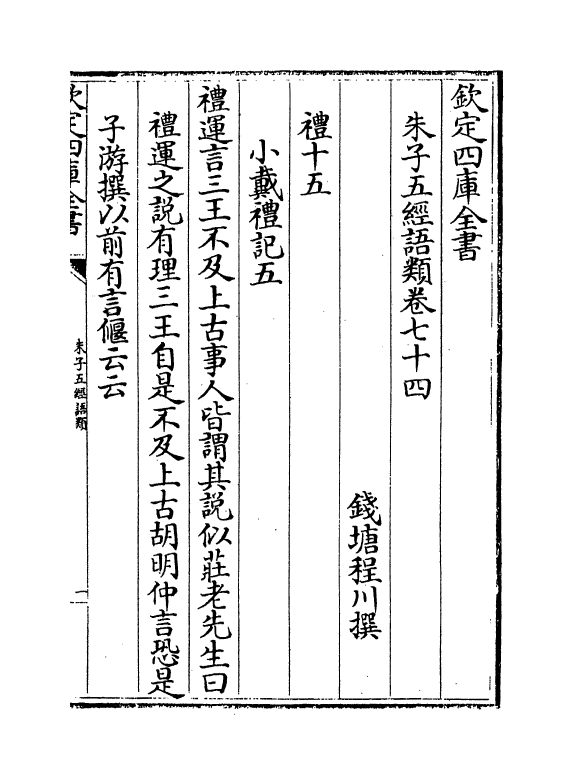 欽定四庫全書
朱子五經語類卷七十四
錢塘程川撰
禮十五
小戴禮記五
禮運言三王不及上古事人皆謂其説似莊老先生曰
禮運之説有理三王自是不及上古胡明仲言恐是
子游撰以前有言偃云云
欽定四庫全書
朱子五經語類
一